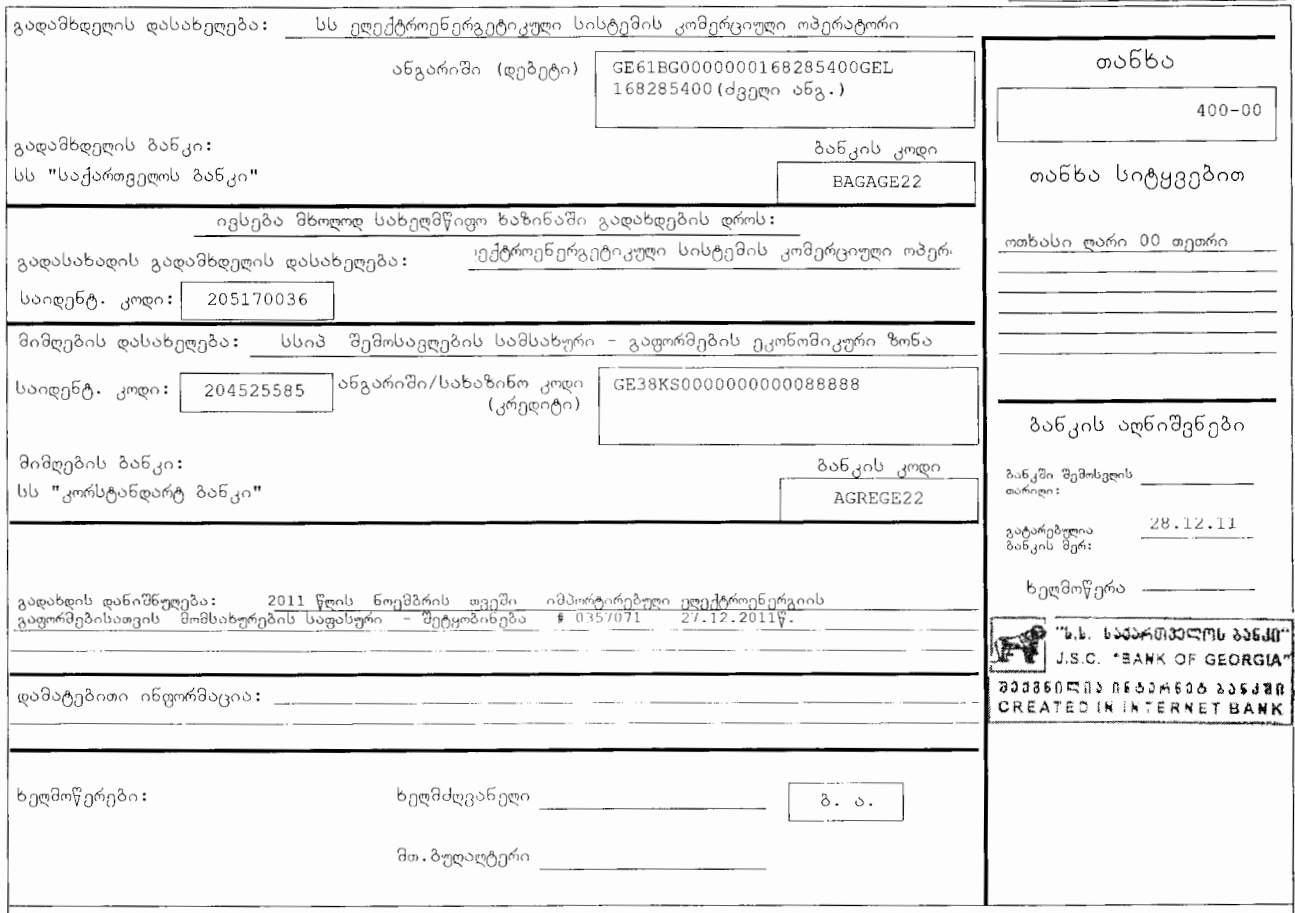 გადამხდელის დასახელება: სს ელექტროენერგეტიკული სისტემის კომერციული ოპერატორი
ანგარიში (დებეტი)
GE61BG0000000168285400GEL
168285400(ძველი ანგ.)
გადამხდელის ბანკი:
ბანკის კოდი
სს "საქართველოს ბანკი"
BAGAGE22
ივსება მხოლოდ სახელმწიფო ხაზინაში გადახდების დროს:
გადასახადის გადამხდელის დასახელება: ელექტროენერგეტიკული სისტემის კომერციული ოპერ
საიდენტ. კოდი: 205170036
მიმღების დასახელება: სსიპ შემოსავლების სამსახური - გაფორმების ეკონომიკური ზონა
საიდენტ. კოდი: 204525585
ანგარიში/სახაზინო კოდი
(კრედიტი)
GE38KS0000000000088888
მიმღების ბანკი:
ბანკის კოდი
სს "კორსტანდარტ ბანკი"
AGREGE22
გადახდის დანიშნულება: 2011 წლის ნოემბრის თვეში იმპორტირებული ელექტროენერგიის
გაფორმებისათვის მომსახურების საფასური - შეტყობინება # 0357071 27.12.2011წ.
დამატებითი ინფორმაცია:
ხელმოწერები:
ხელმძღვანელი
ბ. ა.
მთ.ბუღალტერი
თანხა
400-00
თანხა სიტყვებით
ოთხასი ლარი 00 თეთრი
ბანკის აღნიშვნები
ბანკში შემოსვლის
თარიღი:
გატარებულია
ბანკის მერ:
28.12.11
ხელმოწერა
"ს.ს. საქართველოს ბანკი"
J.S.C. "BANK OF GEORGIA"
შექმნილია ინტერნეტ ბანკში
CREATED IN INTERNET BANK